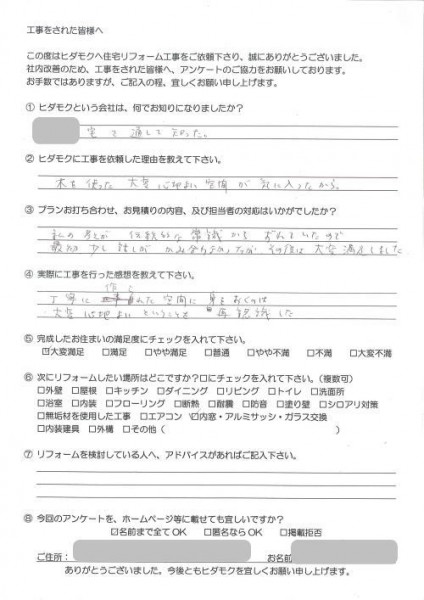 工事をされた皆様へ
この度はヒダモクへ住宅リフォーム工事をご依頼下さり、誠にありがとうございました。
社内改善のため、工事をされた皆様へ、アンケートのご協力をお願いしております。
お手数ではありますが、ご記入の程、宜しくお願い申し上げます。
① ヒダモクという会社は、何でお知りになりましたか?
宅を通して知った。
② ヒダモクに工事を依頼した理由を教えて下さい。
木を使った 大変心地よい空間が気に入ったから。
③ プランお打ち合わせ、お見積りの内容、及び担当者の対応はいかがでしたか?
私の考えが 伝統的な常識から ずれていたので
最初少し話しが かみ合わなかったが その後は大変満足しました
④ 実際に工事を行った感想を教えて下さい。
作ら
丁寧に れた空間に 身をおくのは
大変心地よいということを 再認識した
⑤ 完成したお住まいの満足度にチェックを入れて下さい。
☑大変満足 □満足 □やや満足 □普通 □やや不満 □不満 □大変不満
⑥ 次にリフォームしたい場所はどこですか?□にチェックを入れて下さい。(複数可)
□外壁 □屋根 □キッチン □ダイニング □リビング □トイレ □洗面所
□浴室 □内装 □フローリング □断熱 □耐震 □防音 □塗り壁 □シロアリ対策
□無垢材を使用した工事 □エアコン ☑内窓・アルミサッシ・ガラス交換
□内装建具 □外構 □その他( )
⑦ リフォームを検討している人へ、アドバイスがあればご記入下さい。
⑧ 今回のアンケートを、ホームページ等に載せても宜しいですか?
☑名前まで全てOK □匿名ならOK □掲載拒否
ご住所: お名前
ありがとうございました。今後ともヒダモクを宜しくお願い申し上げます。